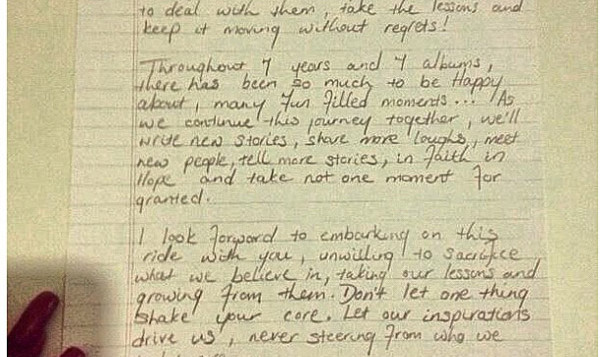 to deal with them, take the lessons and
keep it moving without regrets!
Throughout 7 years and 7 albums,
there has been so much to be Happy
about, many fun filled moments... As
we continue this journey together, we'll
write new stories, share more laughs, meet
new people, tell more stories, in faith in
Hope and take not one moment for
granted.
I look forward to embarking on this
ride with you, unwilling to sacrifice
what we believe in, taking our lessons and
growing from them. Don't let one thing
shake your core. Let our inspirations
drive us, never steering from who we